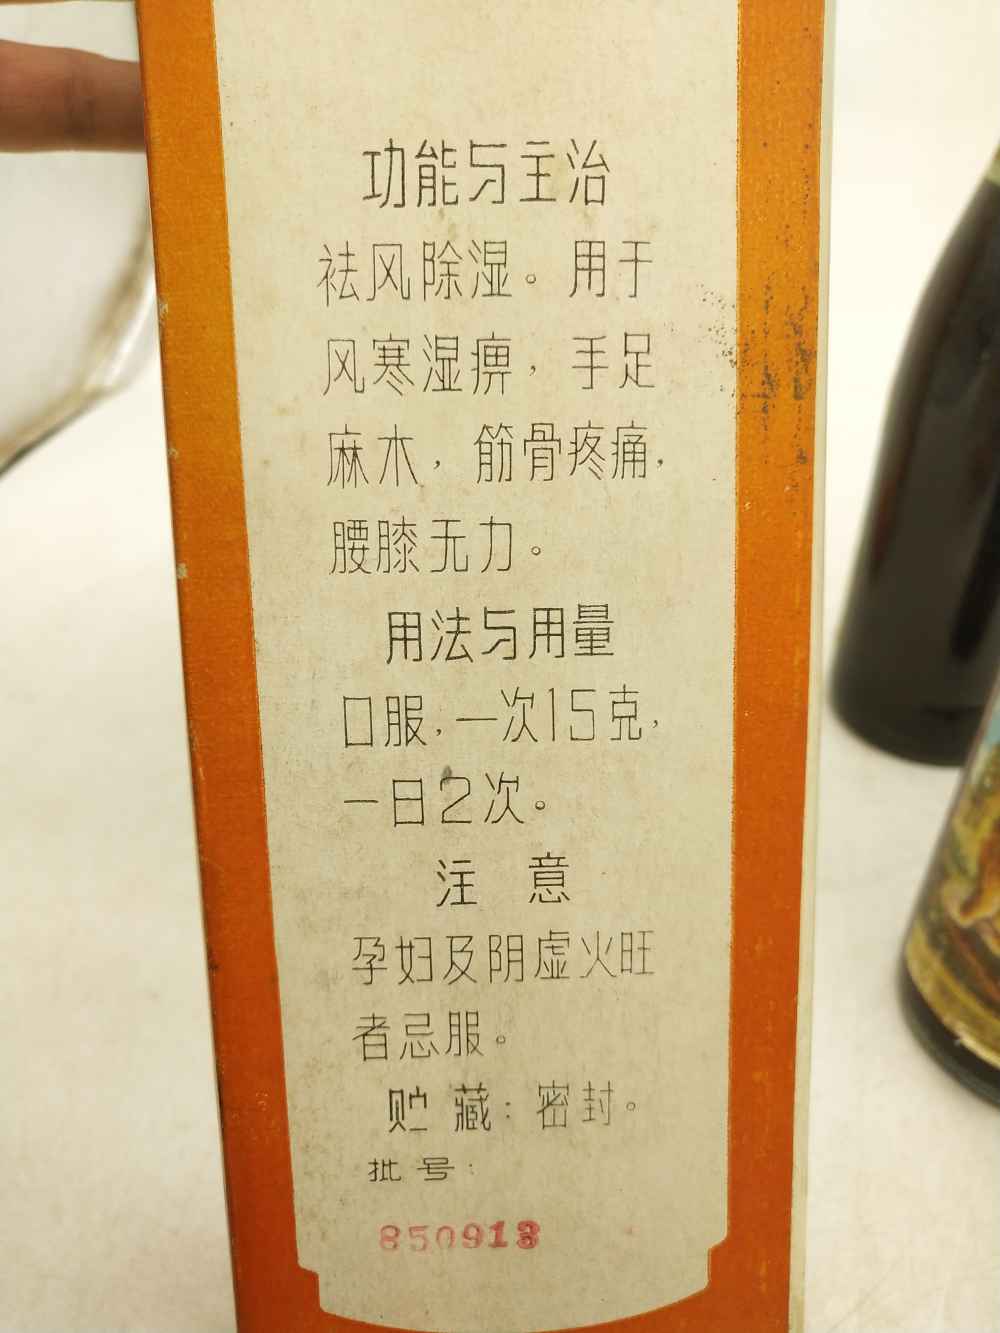 功能与主治
祛风除湿。用于
风寒湿痹，手足
麻木，筋骨疼痛，
腰膝无力。
用法与用量
口服，一次15克，
一日2次。
注 意
孕妇及阴虚火旺
者忌服。
贮 藏：密封。
批号：
850913